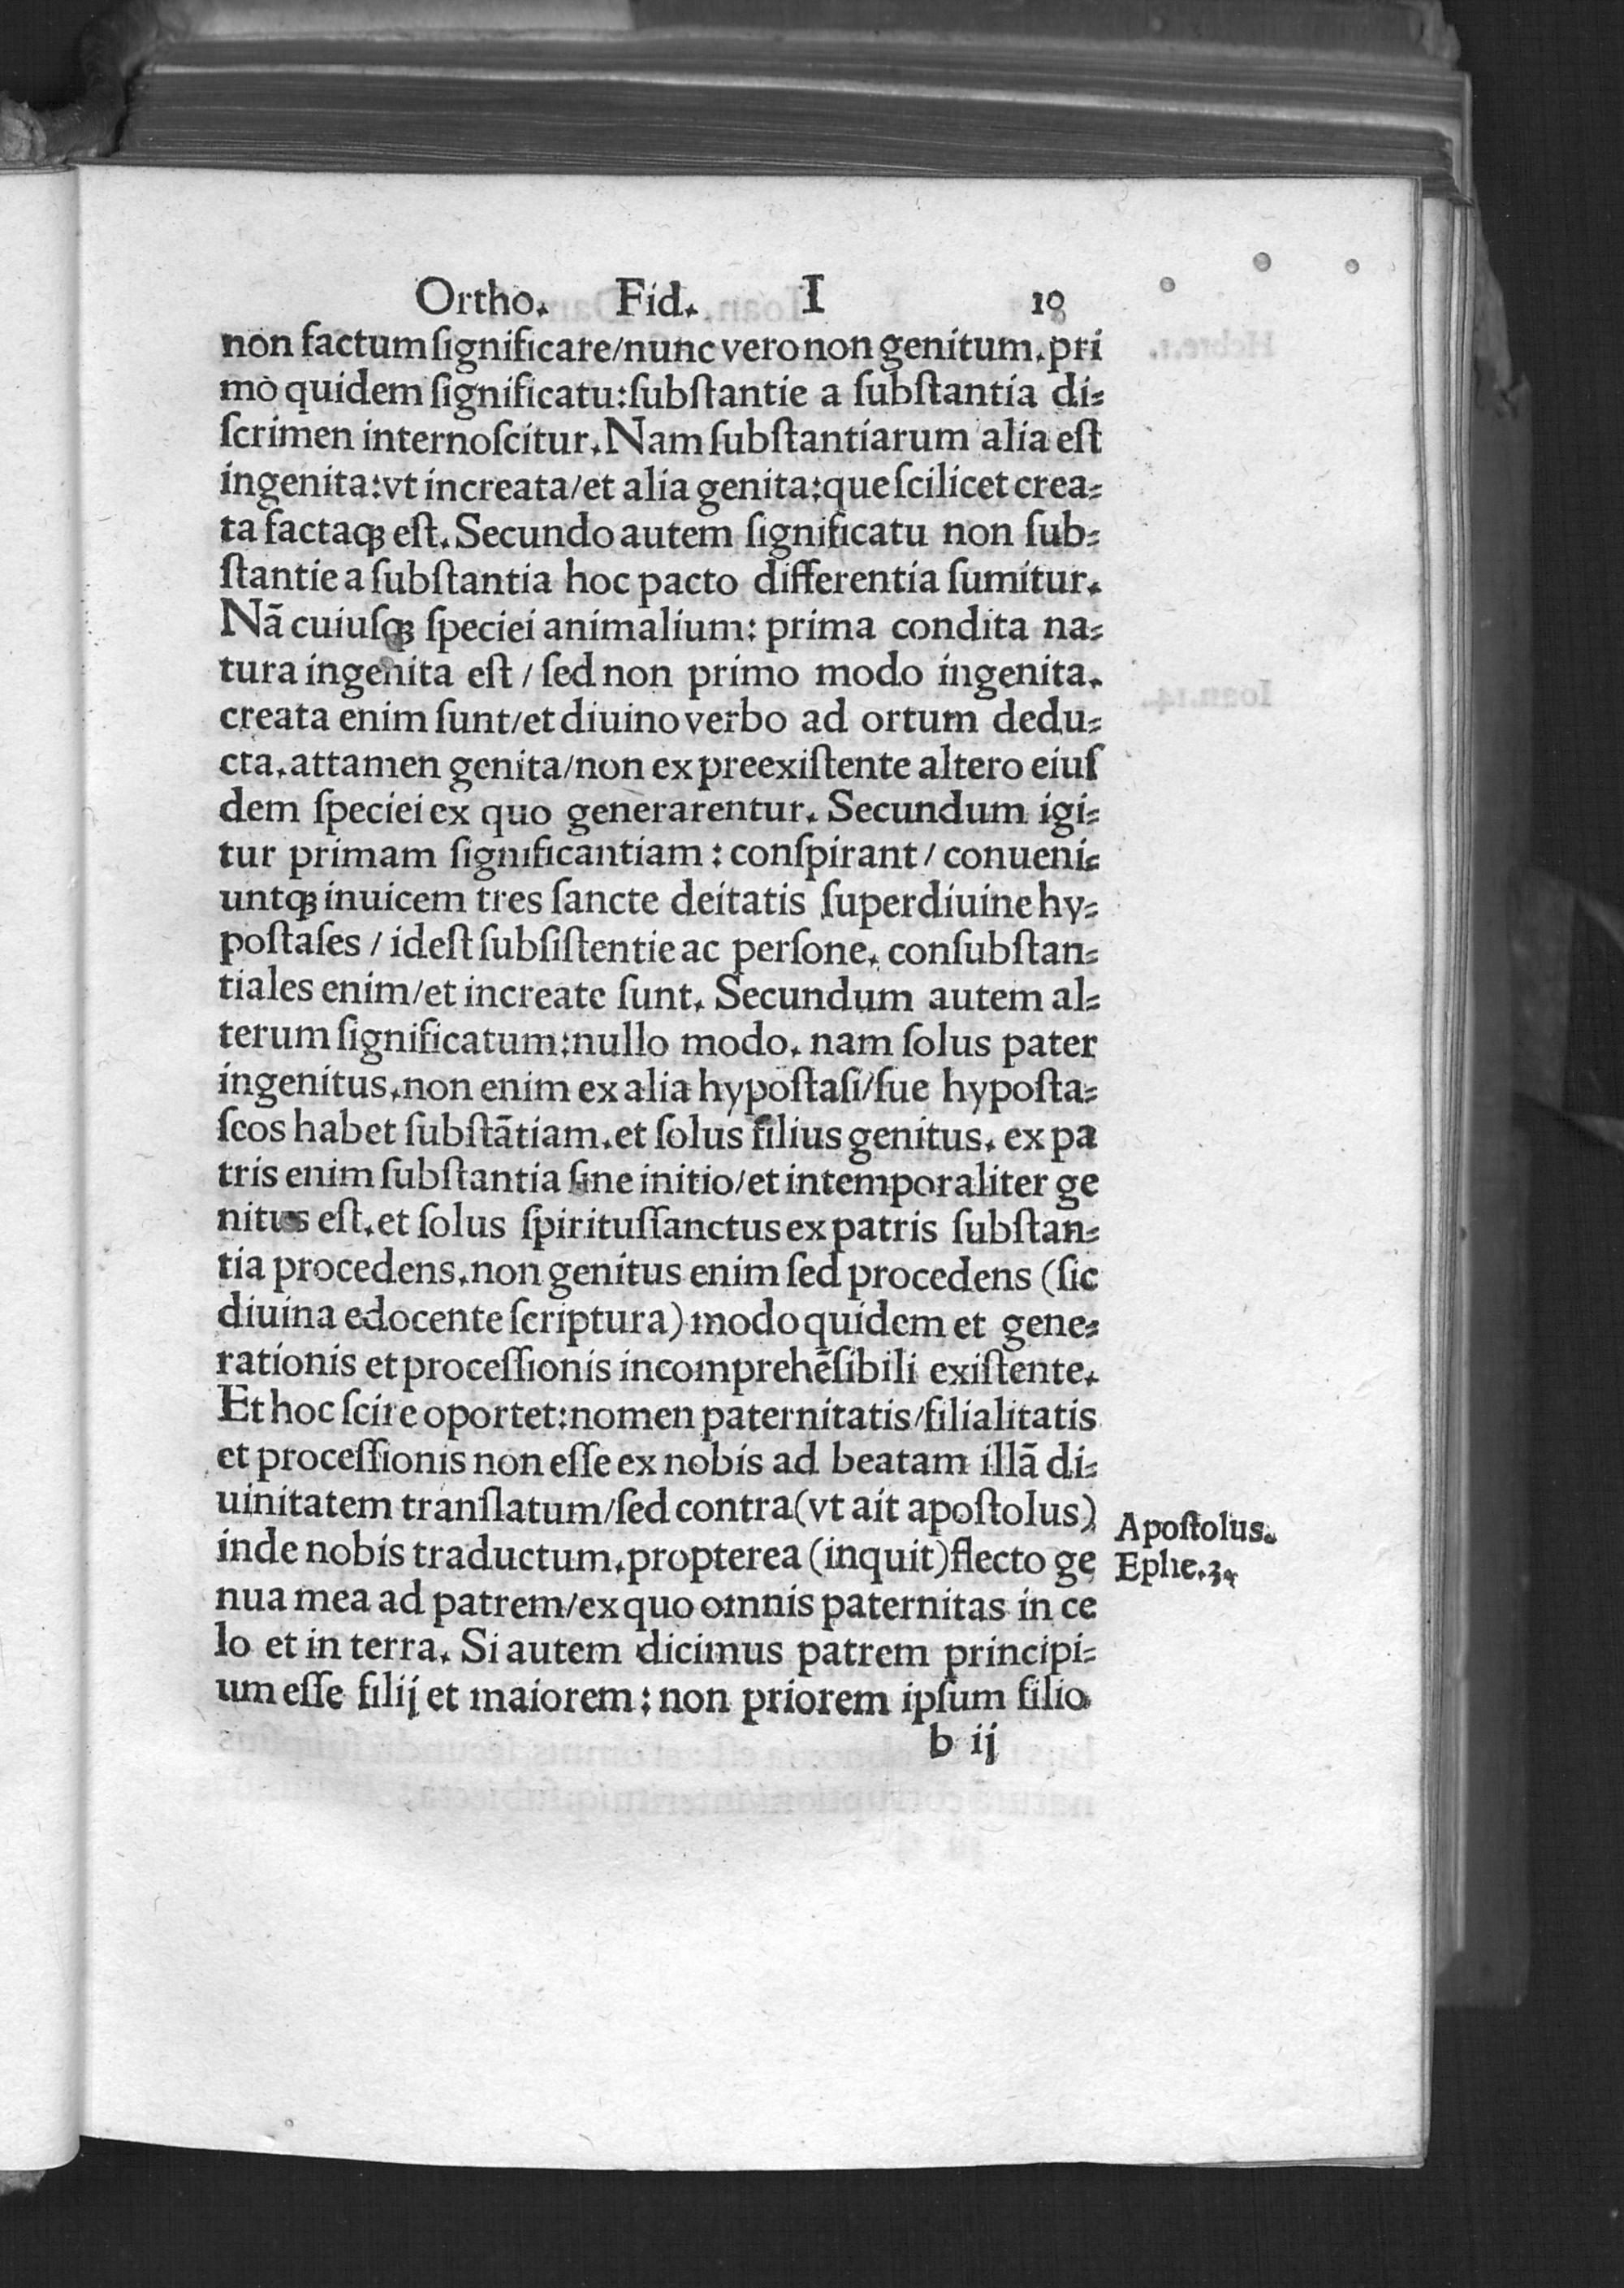 Ortho. Fid. I 10
non factum ſignificare/nunc vero non genitum. pri
mo quidem ſignificatu:ſubſtantie a ſubſtantia di⸗
ſcrimen internoſcitur. Nam ſubſtantiarum alia eſt
ingenita:vt increata/et alia genita:que ſcilicet crea⸗
ta factaqꝫ eſt. Secundo autem ſignificatu non ſub⸗
ſtantie a ſubſtantia hoc pacto differentia ſumitur.
Nã cuiuſqꝫ ſpeciei animalium: prima condita na⸗
tura ingenita eſt / ſed non primo modo ingenita.
creata enim ſunt/et diuino verbo ad ortum dedu⸗
cta. attamen genita/non ex preexiſtente altero eiuſ
dem ſpeciei ex quo generarentur. Secundum igi⸗
tur primam ſignificantiam : conſpirant / conueni⸗
untqꝫ inuicem tres ſancte deitatis ſuperdiuine hy⸗
poſtaſes / ideſt ſubſiſtentie ac perſone. conſubſtan⸗
tiales enim/et increate ſunt. Secundum autem al⸗
terum ſignificatum:nullo modo. nam ſolus pater
ingenitus. non enim ex alia hypoſtaſi/ſue hypoſta⸗
ſeos habet ſubſtãtiam. et ſolus filius genitus. ex pa
tris enim ſubſtantia ſine initio/et intemporaliter ge
nitus eſt. et ſolus ſpirituſſanctus ex patris ſubſtan⸗
tia procedens. non genitus enim ſed procedens (ſic
diuina edocente ſcriptura) modo quidem et gene⸗
rationis et proceſſionis incomprehẽſibili exiſtente.
Et hoc ſcire oportet:nomen paternitatis/filialitatis
et proceſſionis non eſſe ex nobis ad beatam illã di⸗
uinitatem tranſlatum/ſed contra (vt ait apoſtolus)
inde nobis traductum. propterea (inquit) flecto ge
nua mea ad patrem/ex quo omnis paternitas in ce
lo et in terra. Si autem dicimus patrem principi⸗
um eſſe filij et maiorem : non priorem ipſum filio
b ij
Apoſtolus.
Ephe.3.